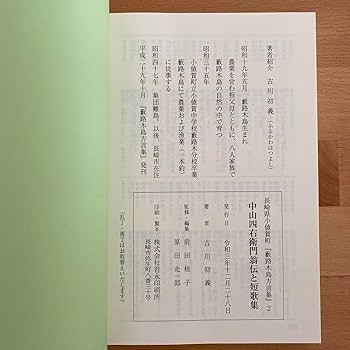 著者紹介 古川 初義(ふるかわはつよし)
昭和十九年五月 藪路木島生まれ
農業を営む祖父母とともに、八人家族で
藪路木島の自然の中で育つ
昭和三十五年
小値賀町立小値賀中学校藪路木分校卒業
藪路木島にて農業および漁業(一本釣)
に従事する
昭和四十七年 集団離島。以後、長崎市在住
平成二十九年十月 『藪路木島方言集』発刊
長崎県小値賀町『藪路木島方言集』2
中山四右衛門翁伝と短歌集
発行日 令和三年十二月二十八日
著者 古川初義
監修・編集 前田桂子
原田走一郎
印刷・製本 株式会社岩永印刷所
長崎市弥生町八番三十号
(乱丁・落丁はお取替えいたします)